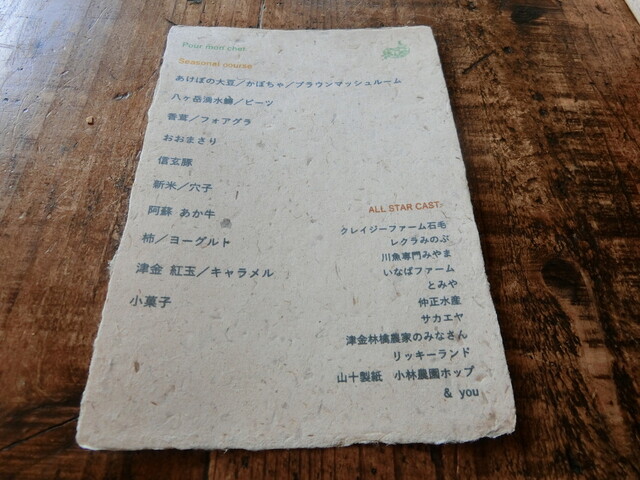 Pour mon chef
Seasonal course
あけぼの大豆／かぼちゃ／ブラウンマッシュルーム
八ヶ岳湧水鱒／ビーツ
香茸／フォアグラ
おおまさり
信玄豚
新米／穴子
阿蘇 あか牛
柿／ヨーグルト
津金 紅玉／キャラメル
小菓子
ALL STAR CAST
クレイジーファーム石毛
レクラみのぶ
川魚専門みやま
いなばファーム
とみや
仲正水産
サカエヤ
津金林檎農家のみなさん
リッキーランド
山十製紙 小林農園ホップ
& you